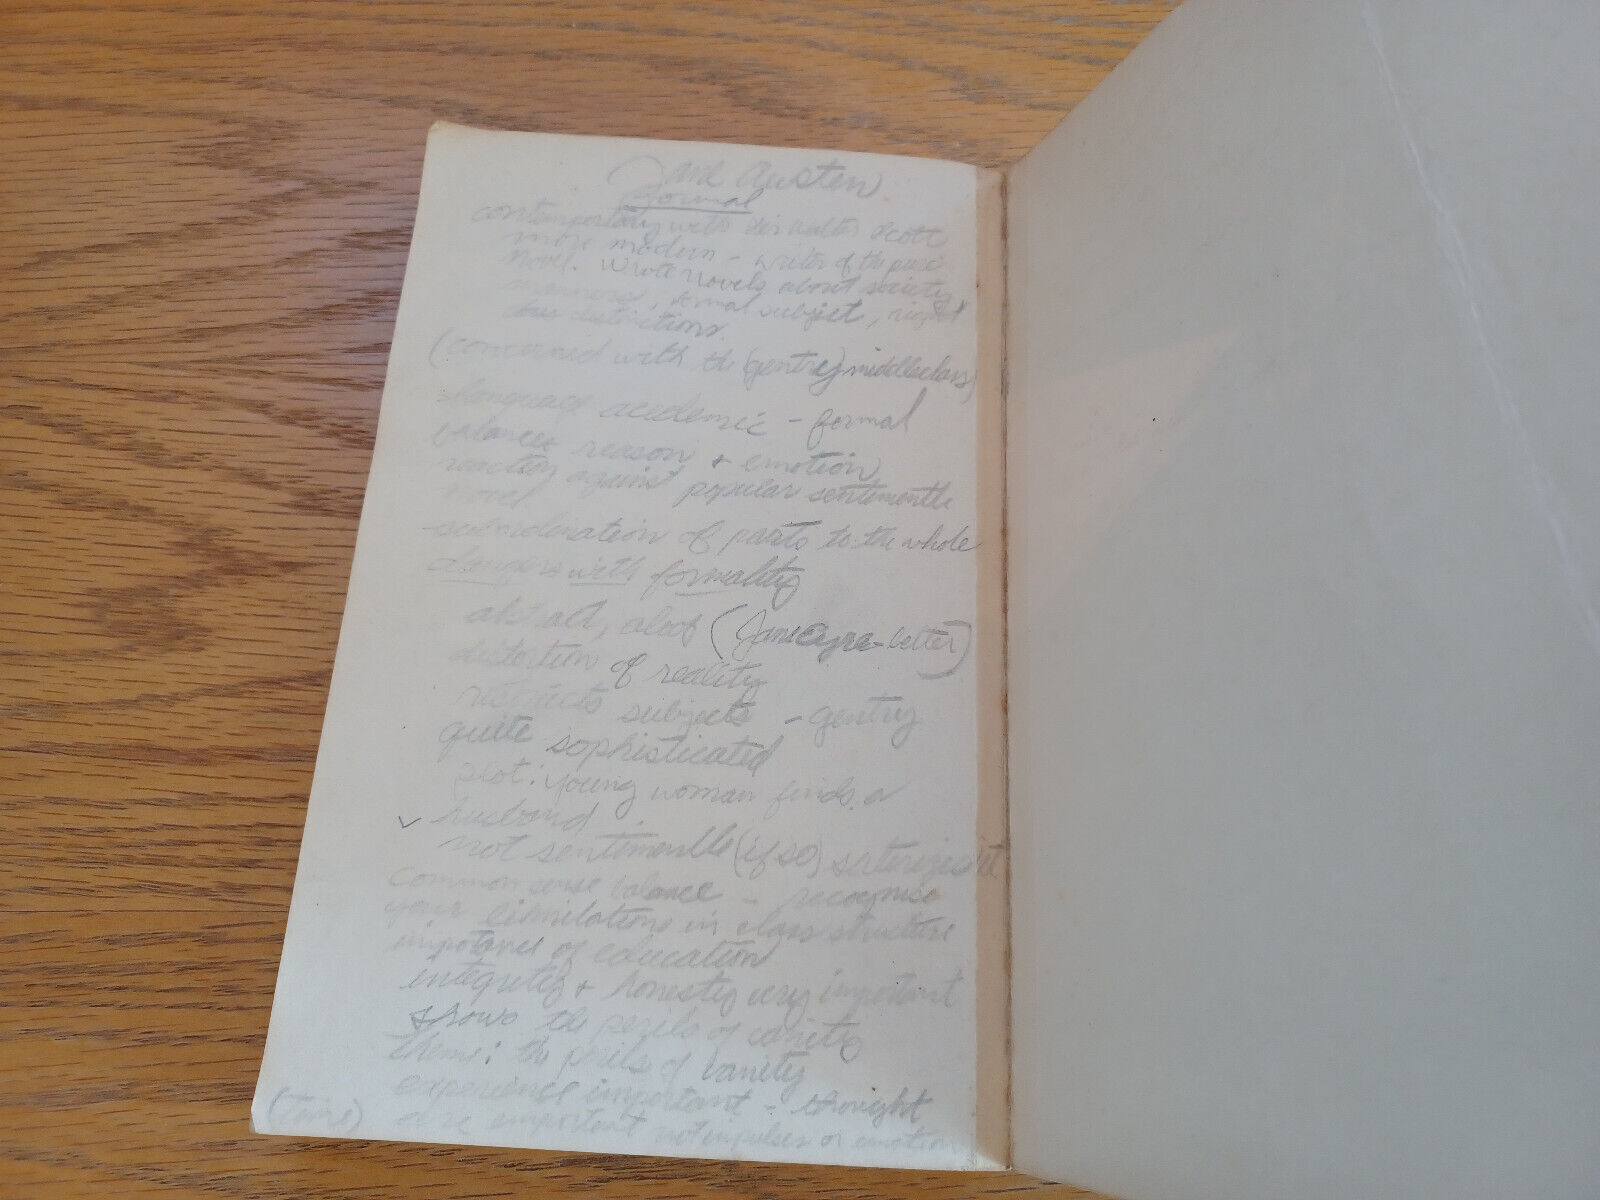 Jane Austen
formal
contemporary with Sir Walter Scott
more modern - writer of the pure
novel. Wrote novels about society,
manners, formal subject, rigid
class distinctions.
(concerned with the (gentry) middleclass)
language academic - formal
balance reason + emotion
reaction against popular sentimentle
novel.
subordination of parts to the whole
dangers with formality
abstract, aloof (Jane Eyre - better)
distortion of reality
subjects - gentry
quite sophisticated
plot: young woman finds a
husband
not sentimentle (if so) saterizes it
common sense balance - recognise
your limitations in class structure
importance of education
integrity + honesty very important
shows the perils of vanity
theme: the perils of vanity
experience important - thought
(time) are important not impulses or emotion